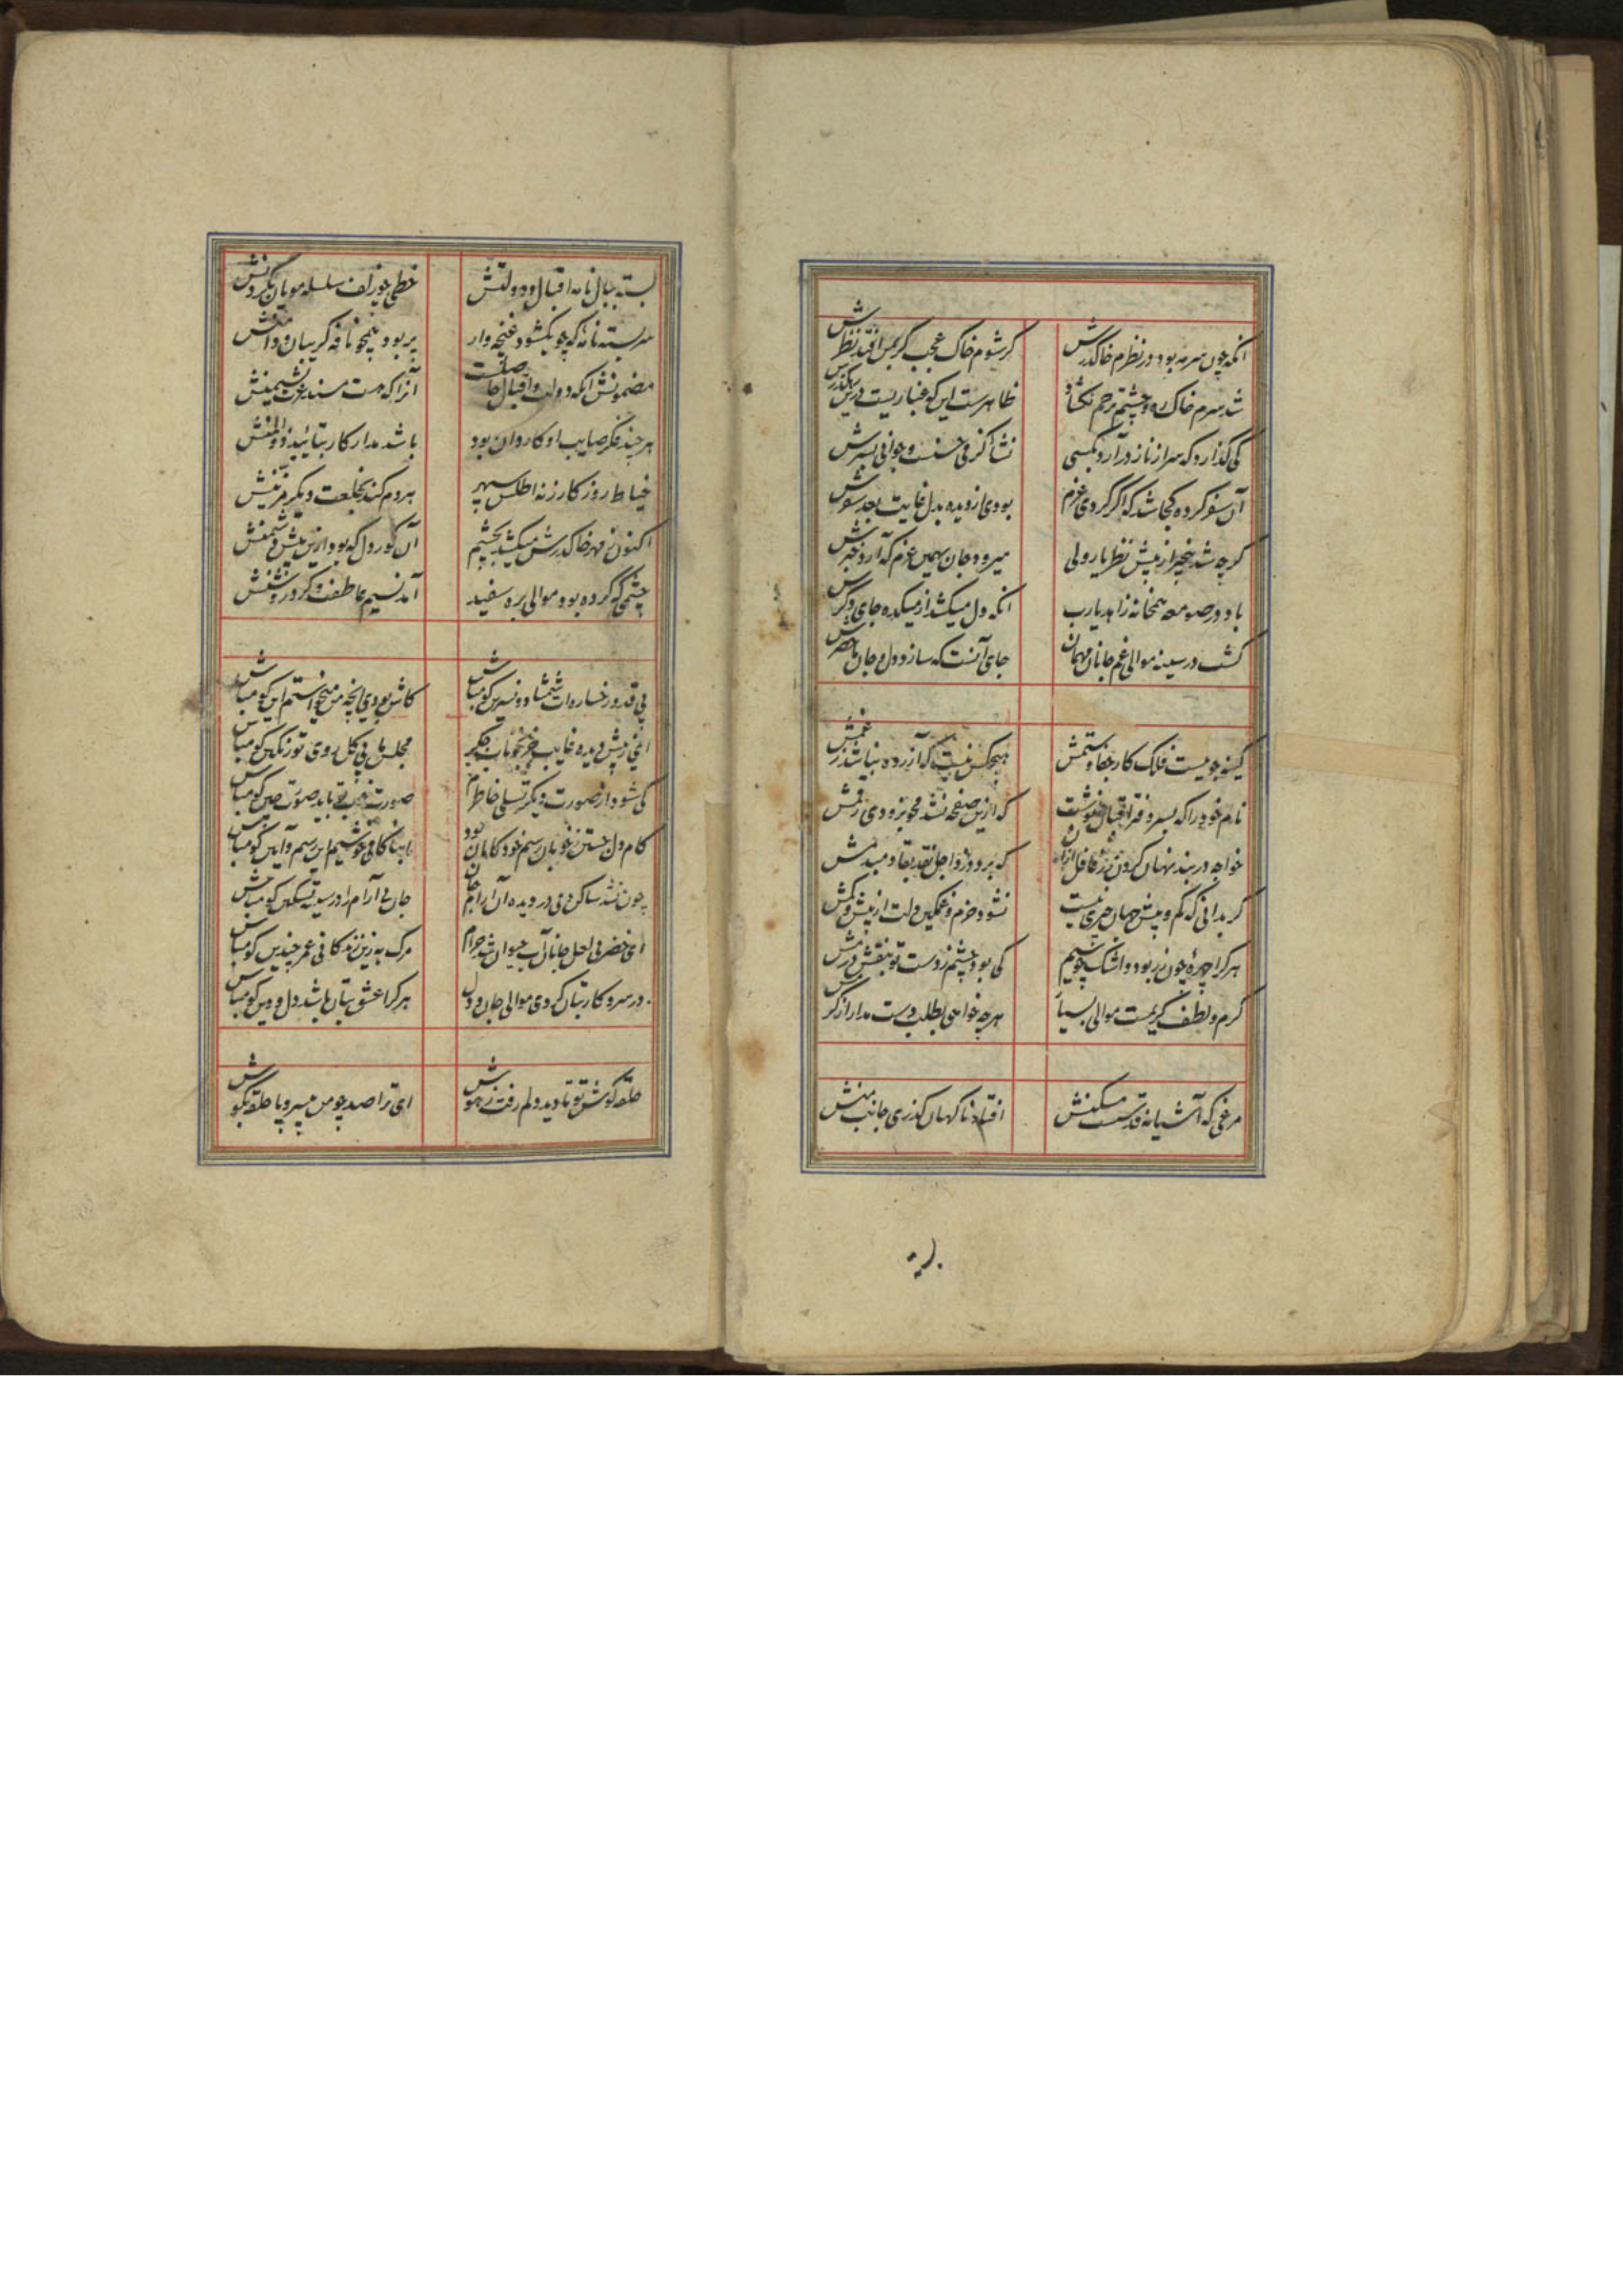 انکه چون سرمه بود در نظرم خاک درش
کر شوم خاک عجب کر بمن افتد نظرش
شد سرم خاک ره و چشم ترحم نکشاد
ظاهرست این که غباریست درین رهکذرش
کی کذارد که سر از ناز در آرد بکسی
نشأ کز می حسنست و جوانی بسرش
آن سفر کرده کجا شد که اگر کردی عزم
بودی از دیده بدل غایت بعد سفرش
کرچه شد بیخبر از پیش نظر یار ولی
میرود جان بهمین عزم که آرد خبرش
باد در صومعه همخانه زاهد یارب
انکه دل میکشد از میکده جای دکرش
کشت در سینه موالی غم جانان مهمان
جای آنست که سازد دل و جان ماحضرش
کینه جویست فلک کار جفا و ستمش
هیچکس نیست که آزرده نباشد ز غمش
نام خود را که بسر دفتر اقبال نوشت
که ازین صفحه نشد محو بزودی رقمش
خواجه در بند نهان کردن زر غافل ازان
که برد دزد اجل نقد بقا دمبدمش
کر بدانی که کم و بیش جهان چیزی نیست
نشود خرم و غمکین دلت از بیش و کمش
هر کرا چهره چون زر بود و اشک چو سیم
کی بود چشم ز دست تو بنقش درمش
کرم و لطف کریمت موالی بسیار
هرچه خواهی بطلب دست مدار از کرمش
مرغی که آشیانه قدست مسکنش
افتاد ناکهان کذری جانب منش
بسته ببال نامه اقبال و دولتش
خطی چو زلف سلسله مویان بکردنش
سربسته نامه که چو بکشود غنچه وار
پر بود همچو نافه کریبان و دامنش
مضمونش آنکه دولت و اقبال حاصلست
آنرا که هست مسند عزت نشیمنش
هرچند فکر صایب او کاردان بود
باشد مدار کار بتائید ذوالمنش
خیاط روزکار ز نه اطلس سپهر
هردم کند بخلعت دیکر مزینش
اکنون ز مهر خاک درش میکشد بچشم
آن کوردل که بود ازین پیش دشمنش
چشمی که کرده بود موالی بره سفید
آمد نسیم عاطفت و کرد روشنش
بی قد و رخساره ات شمشاد و نسرین کو مباش
کاش بودی انچه من میخواستم این کو مباش
ای ز پیش دیده غایب جز بخوناب جکر
مجلس ما بی کل روی تو رنکین کو مباش
کی شود از صورت دیکر تسلی خاطرم
صورت خوب تو باید صورت چین کو مباش
کام دل جستن ز خوبان رسم خود کامان بود
ما بناکامی خوشیم این رسم و آیین کو مباش
چون نشد ساکن دمی در دیده آن آرام جان
جان بی آرام را در سینه تسکین کو مباش
ای خضر بی لعل جانان آب حیوان شد حرام
مرک به زین زندکانی عمر چندین کو مباش
در سر و کار بتان کردی موالی جان و دل
هر کرا عشق بتان باشد دل و دین کو مباش
حلقه کوش تو تا دید دلم رفت ز هوش
ای ترا صد چو من بی سر و پا حلقه بکوش